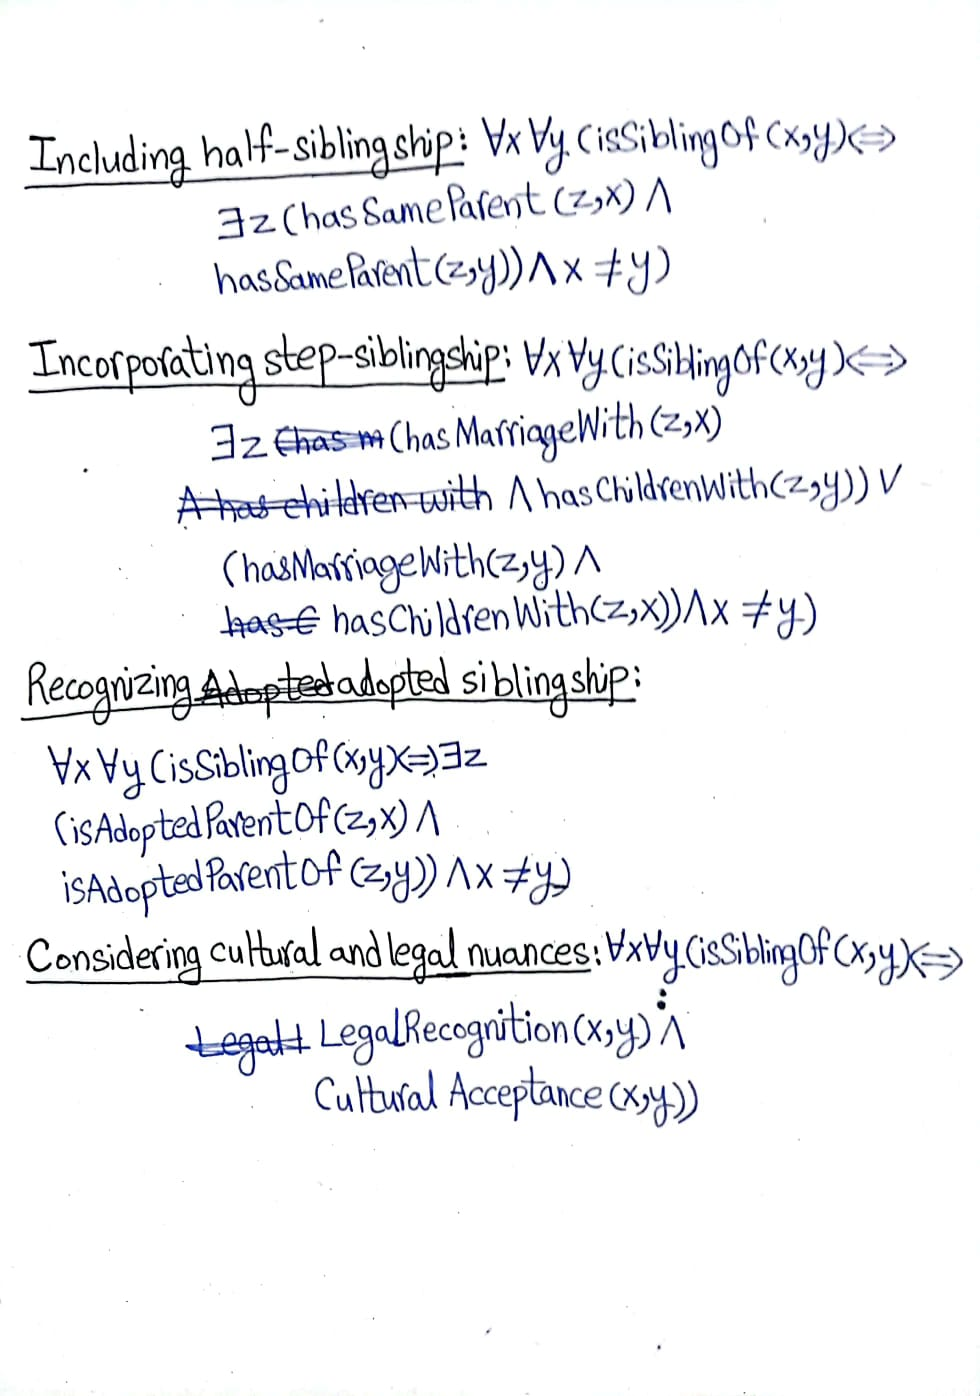 Including half-siblingship: ∀x ∀y (isSiblingOf (x,y)⇔
∃z (has SameParent (z,x) ∧
hasSameParent (z,y)) ∧ x ≠ y)
Incorporating step-siblingship: ∀x ∀y (isSiblingOf (x,y)⇔
∃z (has m (has MarriageWith (z,x)
A has children with ∧ hasChildrenWith (z,y)) ∨
(hasMarriageWith(z,y) ∧
has C hasChildrenWith(z,x)) ∧ x ≠ y)
Recognizing Adopted adopted siblingship:
∀x ∀y (isSiblingOf (x,y)⇔∃z
(isAdoptedParentOf (z,x) ∧
isAdoptedParentOf (z,y)) ∧ x ≠ y)
Considering cultural and legal nuances: ∀x∀y (isSiblingOf (x,y)⇔
LegalH LegalRecognition (x,y) ∧
Cultural Acceptance (x,y))